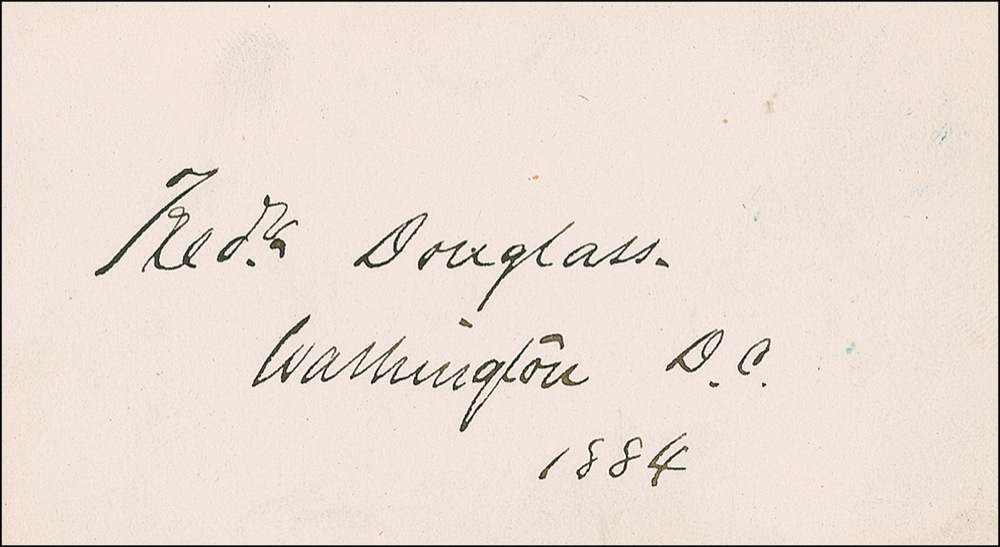 Fredk Douglass.
Washington D.C.
1884